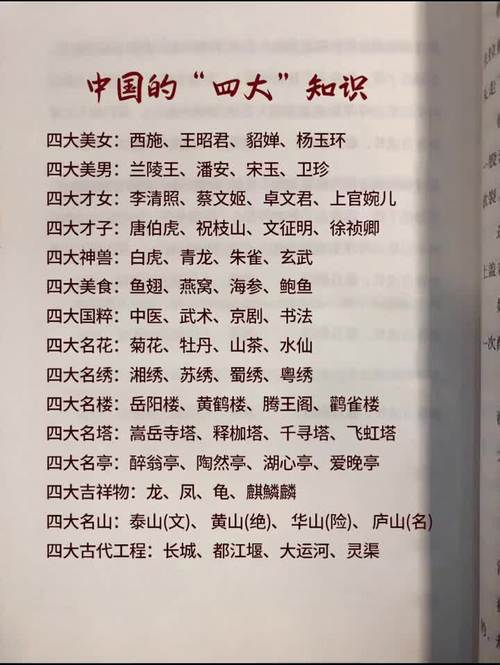 中国的“四大”知识
四大美女：西施、王昭君、貂婵、杨玉环
四大美男：兰陵王、潘安、宋玉、卫玠
四大才女：李清照、蔡文姬、卓文君、上官婉儿
四大才子：唐伯虎、祝枝山、文征明、徐祯卿
四大神兽：白虎、青龙、朱雀、玄武
四大美食：鱼翅、燕窝、海参、鲍鱼
四大国粹：中医、武术、京剧、书法
四大名花：菊花、牡丹、山茶、水仙
四大名绣：湘绣、苏绣、蜀绣、粤绣
四大名楼：岳阳楼、黄鹤楼、腾王阁、鹳雀楼
四大名塔：嵩岳寺塔、释枷塔、千寻塔、飞虹塔
四大名亭：醉翁亭、陶然亭、湖心亭、爱晚亭
四大吉祥物：龙、凤、龟、麒麟麟
四大名山：泰山(文)、黄山(绝)、华山(险)、庐山(名)
四大古代工程：长城、都江堰、大运河、灵渠